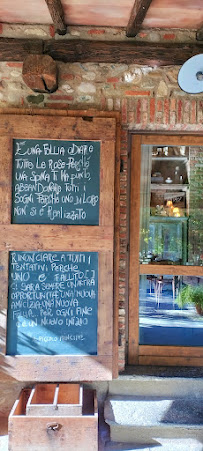 È UNA FOLLIA ODIARE
TUTTE LE ROSE PERCHÉ
UNA SPINA TI HA PUNTO,
ABBANDONARE TUTTI I
SOGNI PERCHÉ UNO DI LORO
NON SI È REALIZZATO
RINUNCIARE A TUTTI I
TENTATIVI PERCHÉ
UNO È FALLITO
CI SARÀ SEMPRE UN'ALTRA
OPPORTUNITÀ UNA NUOVA
AMICIZIA UNA NUOVA
PER OGNI FINE
C'È UN NUOVO INIZIO